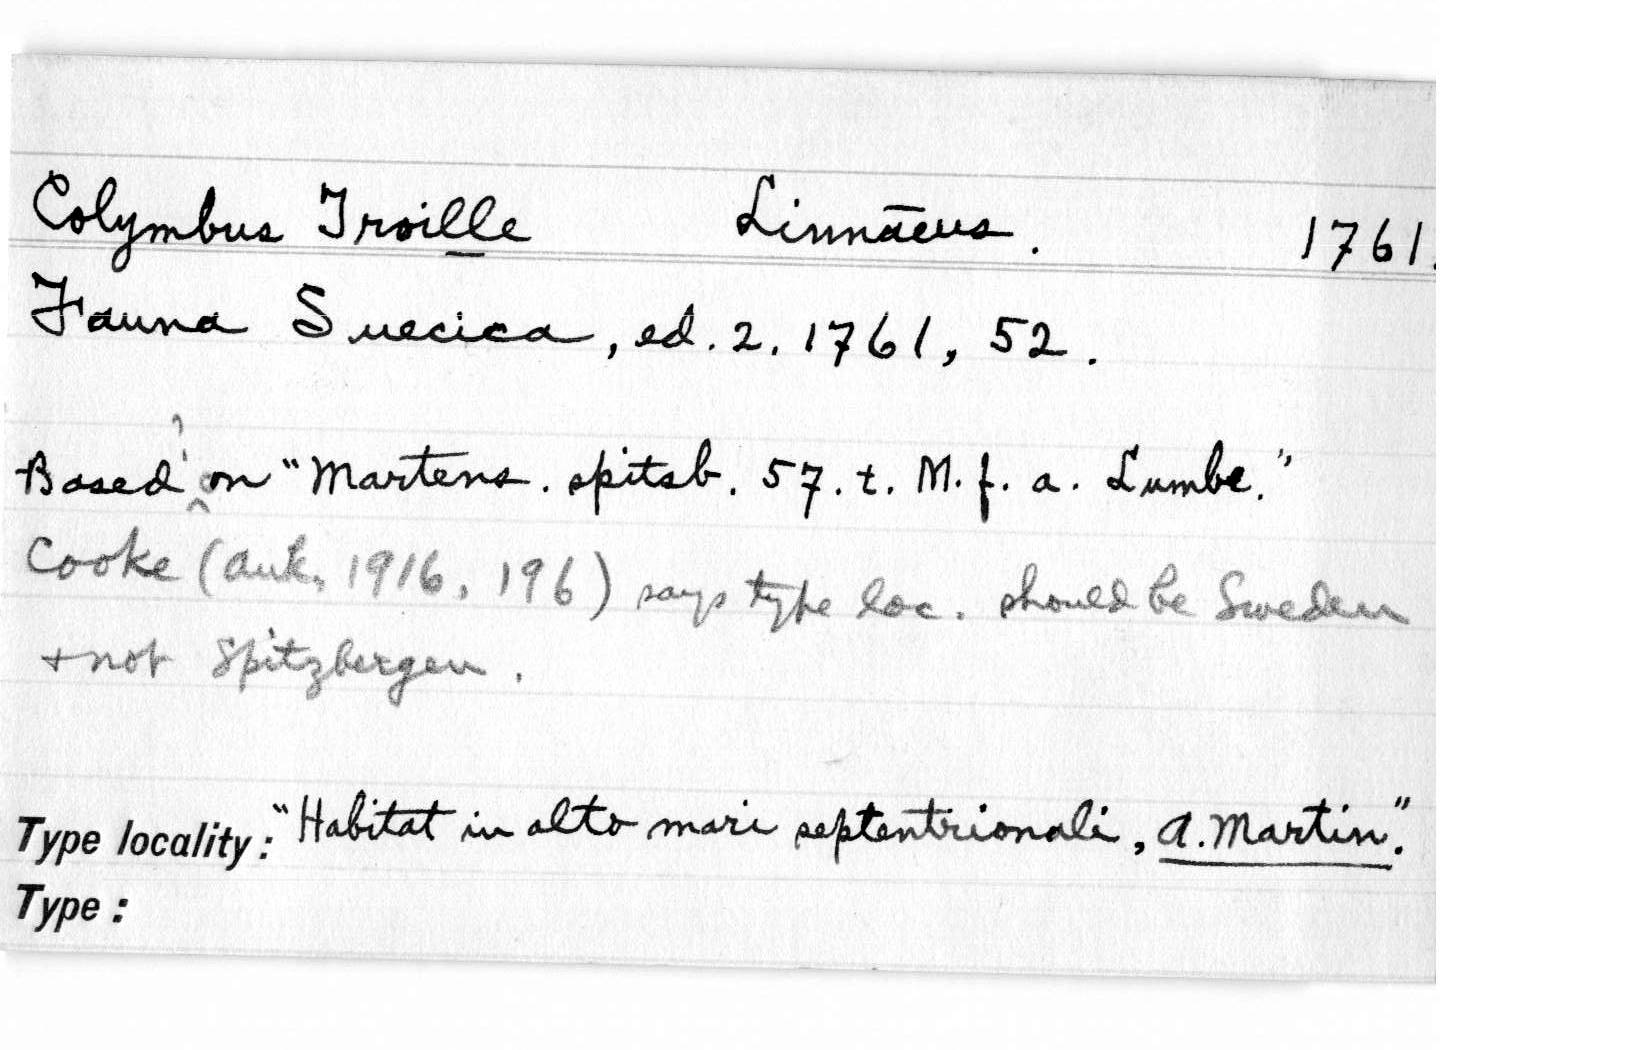 Colymbus Troille Linnaeus. 1761.
Fauna Suecica, ed. 2. 1761, 52.
?
Based on "Martens. spitsb. 57. t. M. f. a. Lumbe."
Cooke (Auk, 1916, 196) says type loc. should be Sweden
+ not Spitzbergen.
Type locality: "Habitat in alto mari septentrionali, A. Martin."
Type: